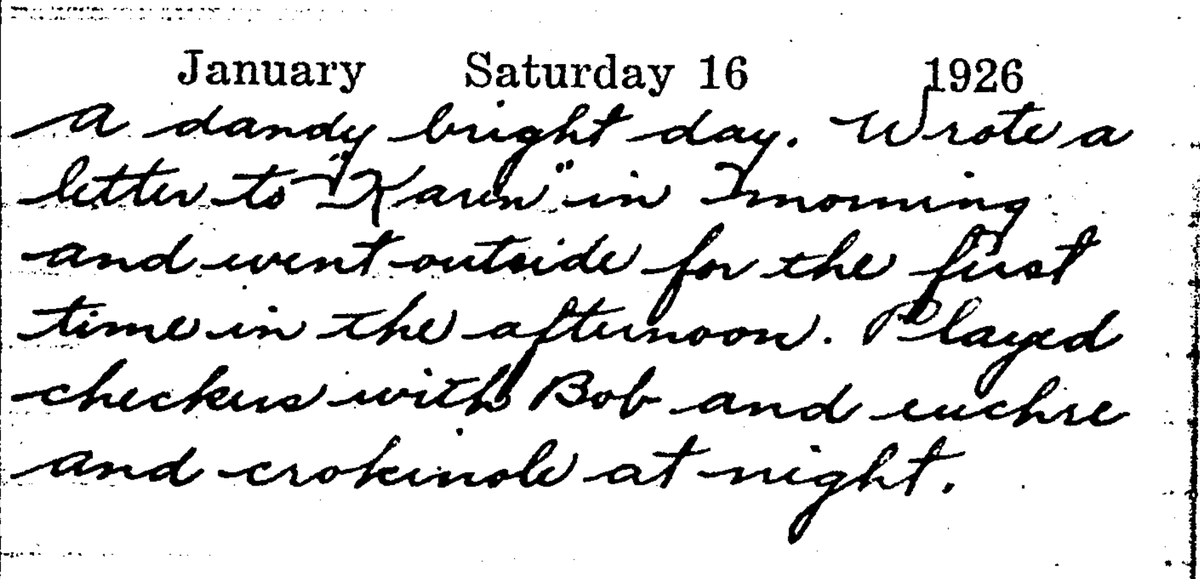 January Saturday 16 1926
A dandy bright day. Wrote a
letter to "Karen" in morning
and went outside for the first
time in the afternoon. Played
checkers with Bob and euchre
and crokinole at night.